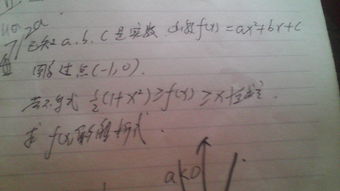 已知 a、b、c 是实数 函数f(x)=ax²+bx+c
图象过点(-1,0).
若不等式 ½(1+x²)≥f(x)≥x
求 f(x)的解析式.
a<0